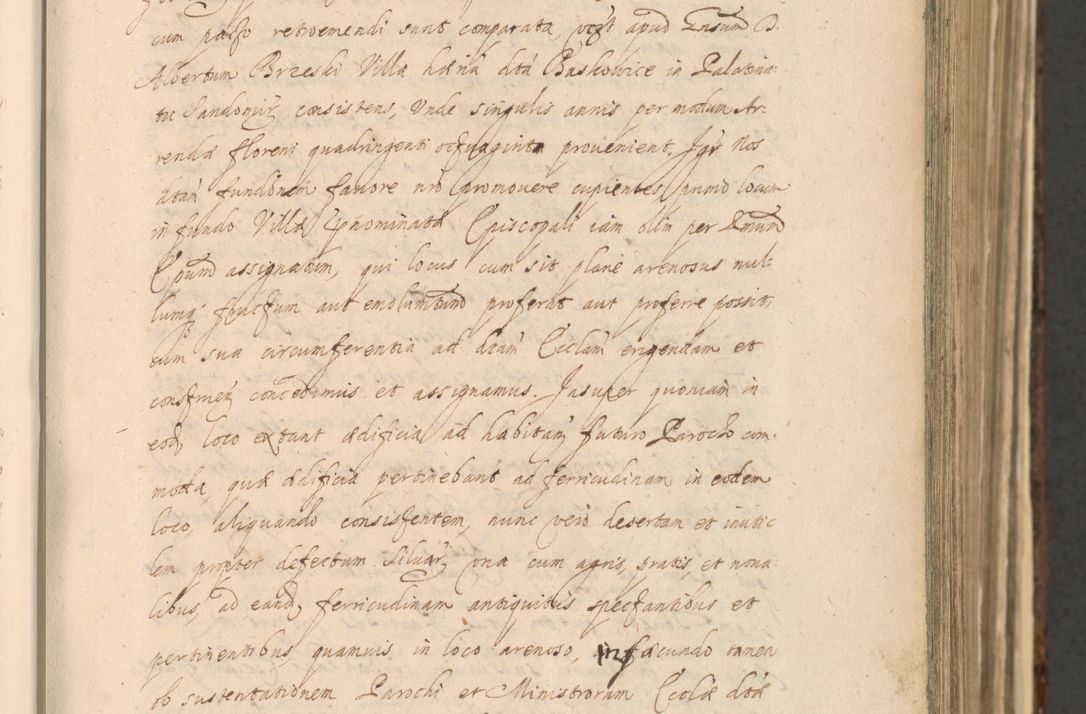 cum pacto redimendi sunt comparata, apud D.
Albertum Brzeski Villa hæria dta Baskowice in Palatina-
tu Sandomir consistens, Unde singulis annis per modum Ar-
rendæ floreni quadringenti octuaginta provenient. Igr Nos
fundõnem favore nrõ promovere cupientes, primo locum
in fundo Villæ Episcopali iam olim per
Epum assignatum, qui locus cum sit plane arenosus nul-
lumq fructum aut emolumentum proferat aut proferre possit,
eum sua circumferentia ad dtam Ecclam erigendam et
concedimus et assignamus. Insuper quoniam in
eod, loco extant ædificia ad habitan futuro Parocho com-
moda, quæ ædificia pertinebant ad ferricudinam in eodem
loco, aliquando consistentem, nunc vero desertam et inuti-
lem propter defectum Silvar, una cum agris, pratis, et nova-
libus, ad eand, ferricudinam antiquitus spectantibus et
pertinentibus, quamuis in loco arenoso, infæcundo tamen
ob sustentationem Parochi et Ministrorum Ecclæ dtæ